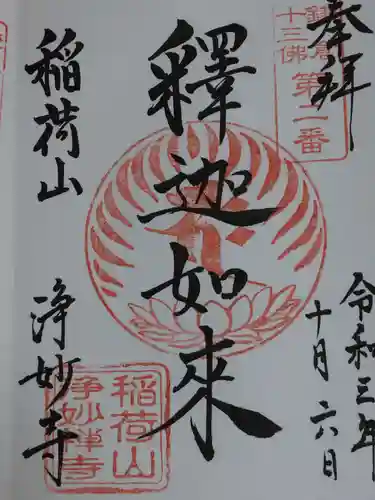 奉拝
鎌倉
十三佛
第二番
令和三年
十月六日
釋迦如来
稲荷山
浄妙寺
稲荷山
浄妙禅寺